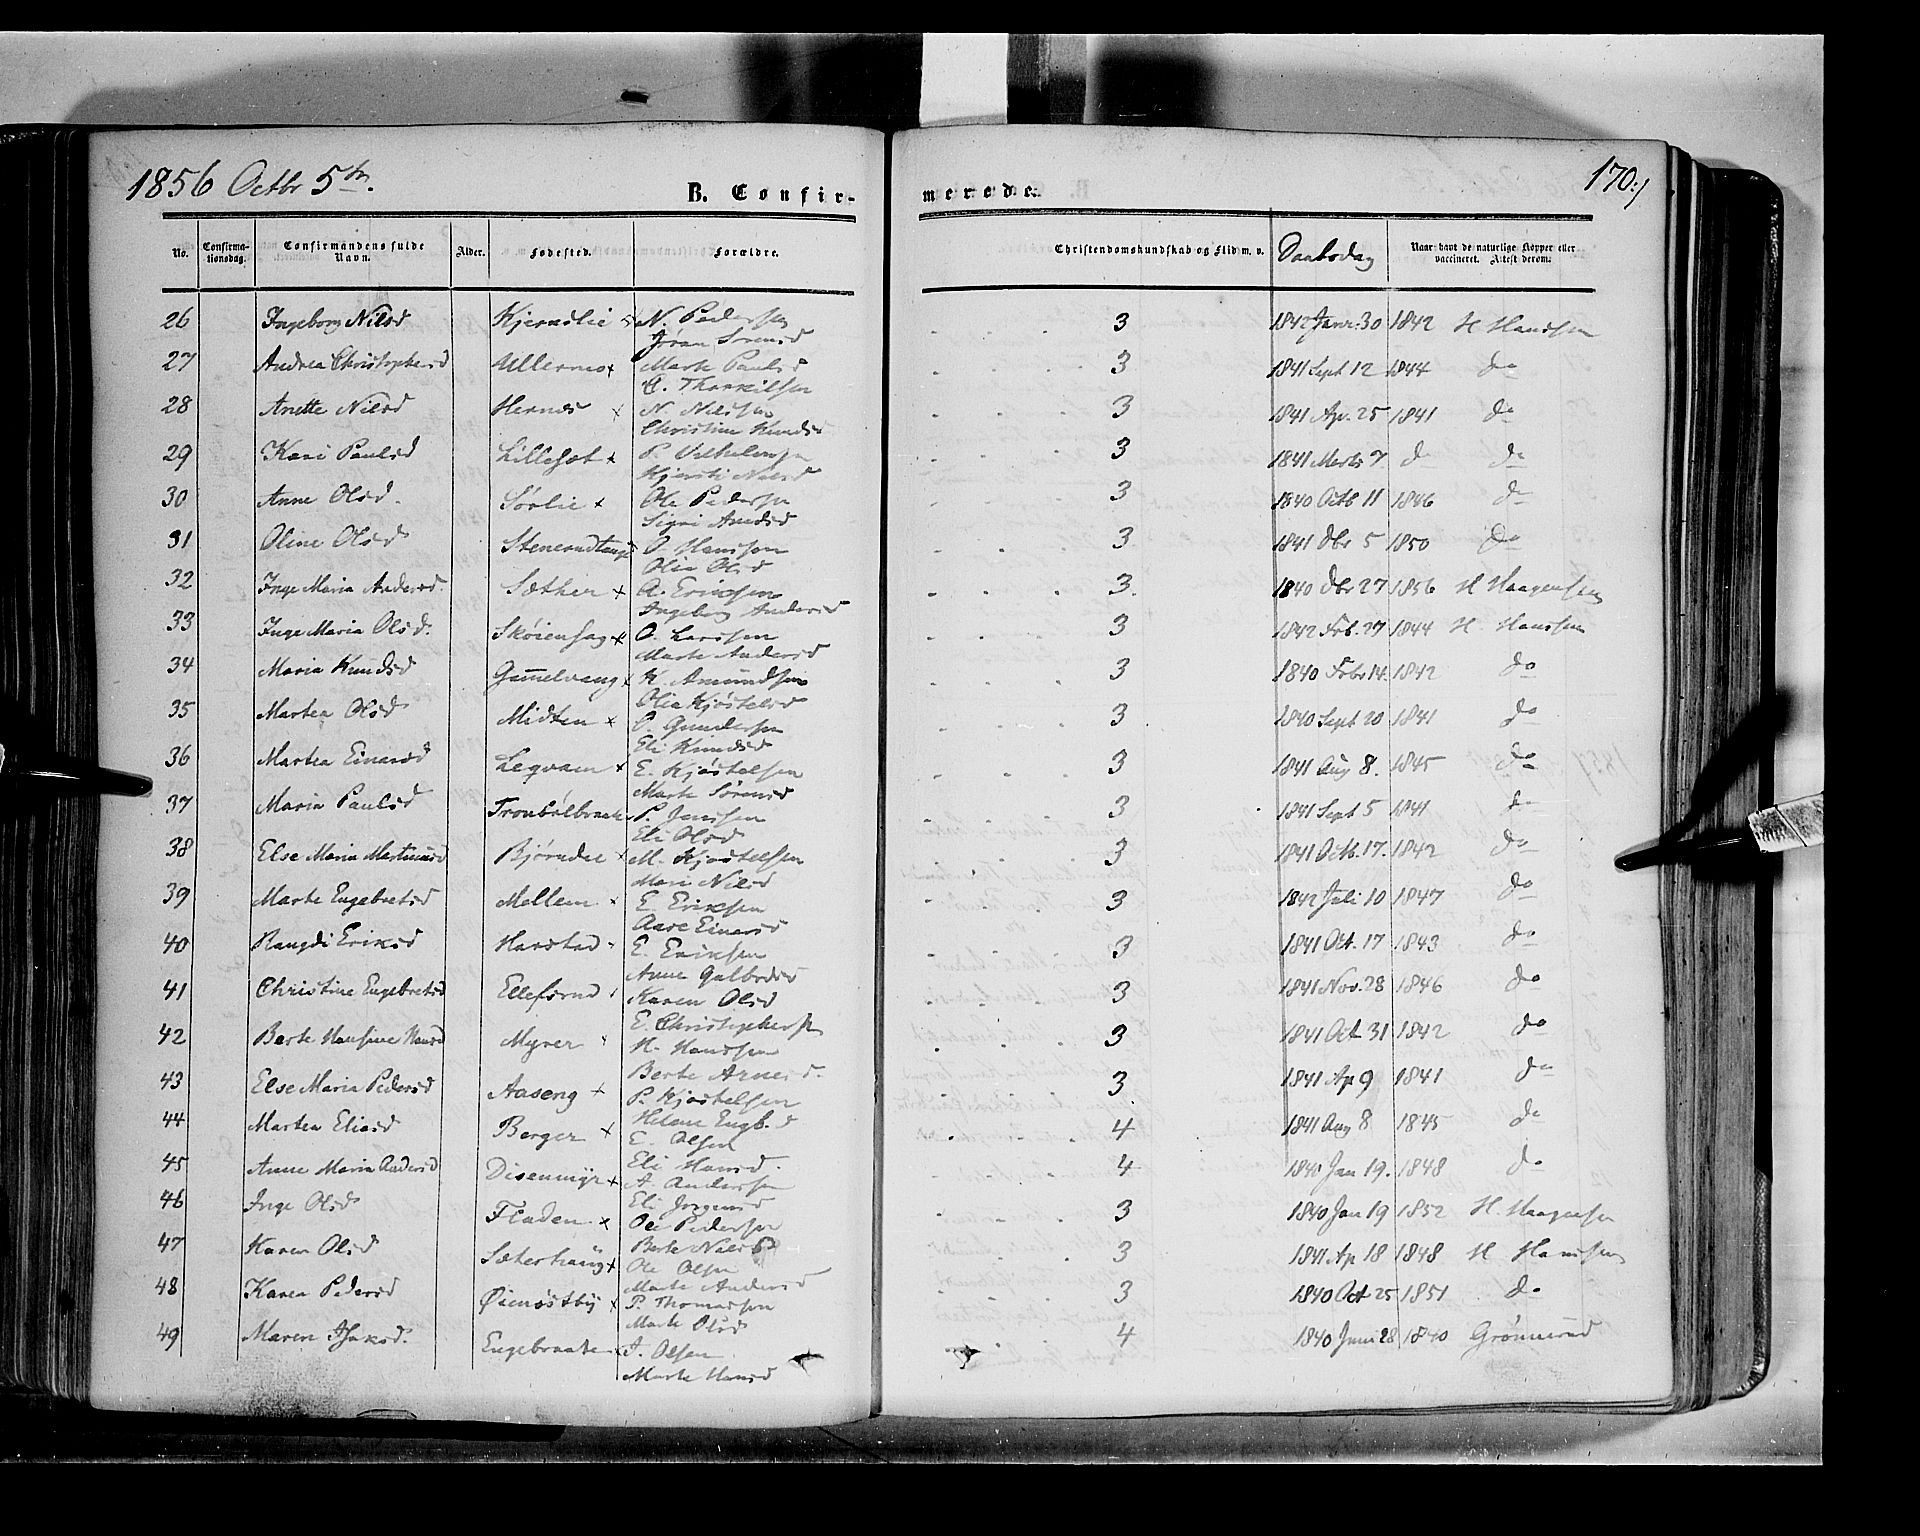 1856 Octbr 5te.
B. Confir-
merede.
170.
No.
Confirma-tionsdag.
Confirmandens fulde Navn.
Alder.
Fødested.
Forældre.
Christendomskundskab og Flid m. v.
Daabsdag
Naar havt de naturlige Kopper eller vaccineret. Attest derom.
26 Ingeborg Nilsd Kjernslie N. Pedersen 3 1842 Janr. 30 1842 H Hanssen
Jøran Sørensd
27 Andrea Christophersd Ullernes x Marte Paulsd 3 1841 Sept 12 1844 do
C. Thorkilsen
28 Anette Nilsd Hernæs x N. Nilssen 3 1841 Apr. 25 1841 do
Christine Knudsd
29 Kari Paulsd Lillesæt x P. Vilhelmsen 3 1841 Marts 7 do do
Kjersti Nilsd
30 Anne Olsd. Sørlie x Ole Pedersen 3 1840 Octb 11 1846 do
Sigri Amdsd
31 Oline Olsd Stenerudtangen O. Hanssen 3 1841 Dbr 5 1850 do
Olia Olsd
32 Inge Maria Andersd. Sæther x A. Eriksen 3. 1840 Dbr 27 1856 H Haagensen
Ingeborg Andersd
33 Inge Maria Olsd. Skøiensag x O. Larssen 3 1842 Feb. 27 1844 H. Hanssen
Marte Andersd
34 Maria Knudsd Gammelvang x K. Amundsen 3 1840 Febr 14. 1842 do
Olia Kjøstelsd
35 Martea Olsd Midten x O. Gundersen 3 1840 Sept 20 1841 do
Eli Knudsd
36 Martea Einarsd Legvam x E. Kjøstelsen 3 1841 Aug 8. 1845 do
Marte Sørensd
37 Maria Paulsd Tronbølbraaten P. Jenssen 3 1841 Sept 5 1841 do
Eli Olsd
38 Else Maria Martinusd Bjørndee x M. Kjøstelsen 3 1841 Octb. 17. 1842 do
Mari Nilsd
39 Marte Engebretsd Mellem x E. Eriksen 3 1842 Juli 10 1847 do
Aase Einarsd
40 Rangdi Eriksd Harstad E. Eriksen 3 1841 Oct. 17 1843 do
Anne Gulbrdsd
41 Christine Engebretsd Ellefsrud Karen Olsd 3 1841 Nov. 28 1846 do
E. Christophersen
42 Berte Hansine Hansd Myrer x H. Hanssen 3 1841 Oct 31 1842 do
Berte Arnesd.
43 Else Maria Pedersd Aaseng x P. Kjøstelsen 3. 1841 Ap 9 1841 do
Helene Engb.d
44 Martea Eliasd Berger x E. Olsen 4 1841 Aug 8 1845 do
Eli Hansd.
45 Anne Maria Andersd Disenmyr x A. Anderssen 4 1840 Jan 19. 1848 do
Eli Jørgensd
46 Inge Olsd Fladen x Ole Pedersen 3 1840 Jan 19 1852 H. Haagensen
Berte Nilsd
47 Karen Olsd Sæterhaug x Ole Olsen 3 1841 Ap 18 1848 H Hanssen
Marte Andersd
48 Karen Pedersd Øiensstby x P. Thomassen 3 1840 Oct 25 1851 do
Marte Olsd
49 Maren Isaksd. Engebraaten x I. Olsen 4 1840 Juni 28 1840 Grønnerud
Marte Hansd